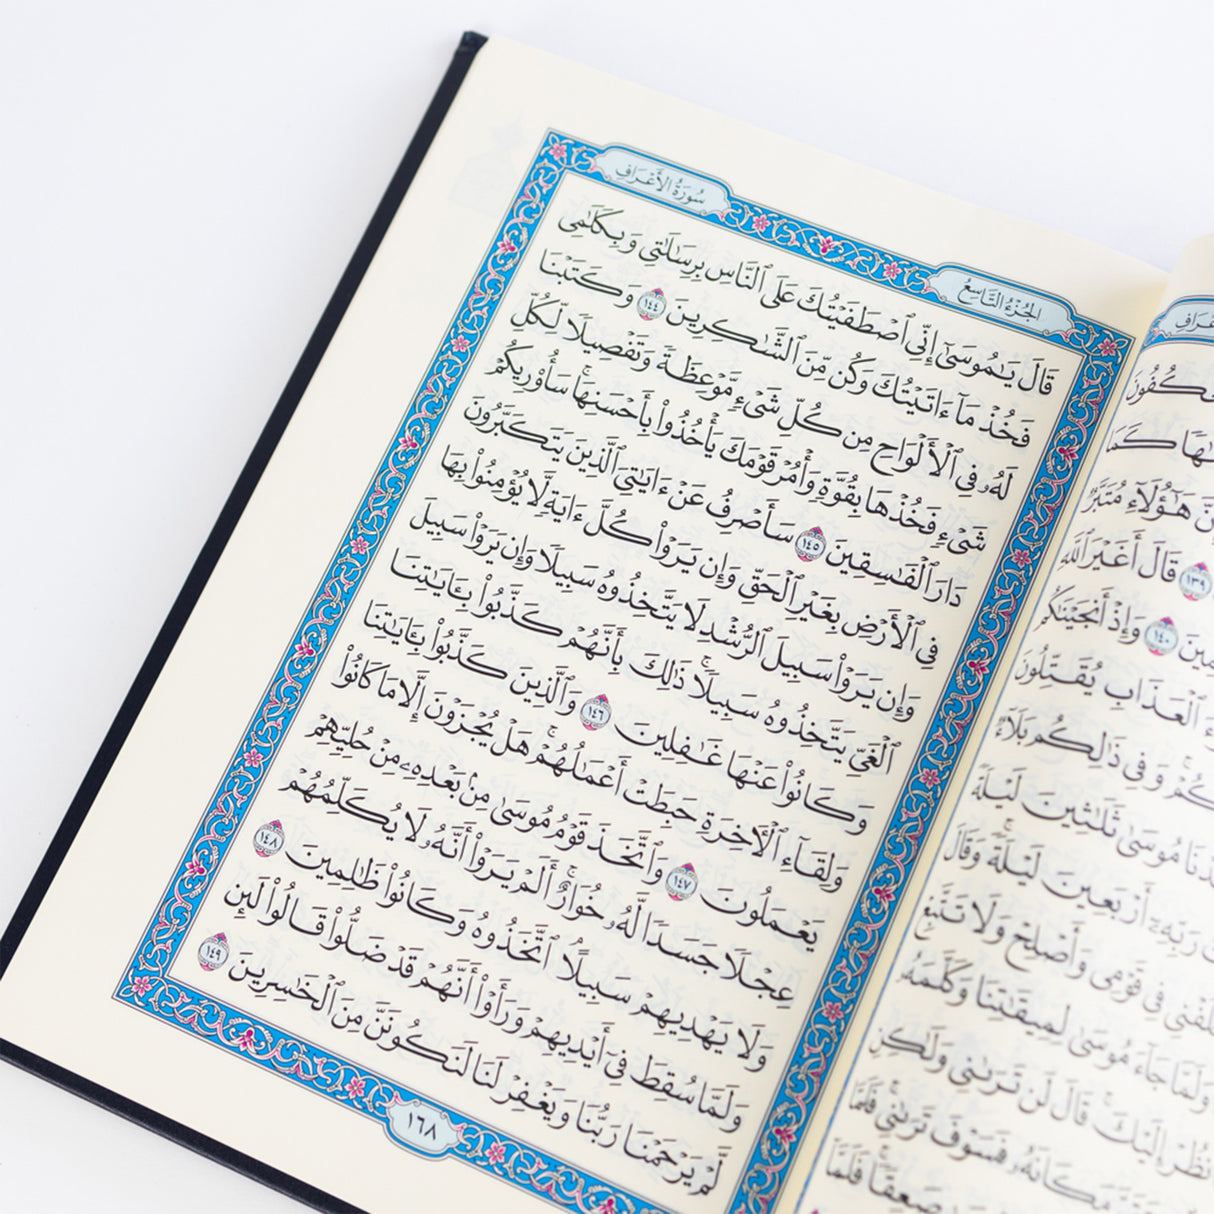 كَمَا
هَٰٓؤُلَآءِ مُتَبَّرٞ
١٣٩ قَالَ أَغَيْرَ ٱللَّهِ
١٤٠ وَإِذْ أَنجَيْنَٰكُم
ٱلْعَذَابِ يُقَتِّلُونَ
وَفِى ذَٰلِكُم بَلَآءٞ
مُوسَىٰ ثَلَٰثِينَ لَيْلَةٗ
رَبِّهِۦٓ أَرْبَعِينَ لَيْلَةٗۚ وَقَالَ
فِى قَوْمِى وَأَصْلِحْ وَلَا تَتَّبِعْ
وَلَمَّا جَآءَ مُوسَىٰ لِمِيقَٰتِنَا وَكَلَّمَهُۥ
إِلَيْكَۚ قَالَ لَن تَرَىٰنِى وَلَٰكِنِ
مَكَانَهُۥ فَسَوْفَ تَرَىٰنِىۚ فَلَمَّا
صَعِقٗاۚ فَلَمَّآ
الجُزْءُ التَّاسِعُ
سُورَةُ الأَعْرَافِ
قَالَ يَٰمُوسَىٰٓ إِنِّى ٱصْطَفَيْتُكَ عَلَى ٱلنَّاسِ بِرِسَٰلَٰتِى وَبِكَلَٰمِى
فَخُذْ مَآ ءَاتَيْتُكَ وَكُن مِّنَ ٱلشَّٰكِرِينَ ١٤٤ وَكَتَبْنَا
لَهُۥ فِى ٱلْأَلْوَاحِ مِن كُلِّ شَىْءٖ مَّوْعِظَةٗ وَتَفْصِيلٗا لِّكُلِّ
شَىْءٖ فَخُذْهَا بِقُوَّةٖ وَأْمُرْ قَوْمَكَ يَأْخُذُوا۟ بِأَحْسَنِهَاۚ سَأُو۟رِيكُمْ
دَارَ ٱلْفَٰسِقِينَ ١٤٥ سَأَصْرِفُ عَنْ ءَايَٰتِىَ ٱلَّذِينَ يَتَكَبَّرُونَ
فِى ٱلْأَرْضِ بِغَيْرِ ٱلْحَقِّ وَإِن يَرَوْا۟ كُلَّ ءَايَةٖ لَّا يُؤْمِنُوا۟ بِهَا
وَإِن يَرَوْا۟ سَبِيلَ ٱلرُّشْدِ لَا يَتَّخِذُوهُ سَبِيلٗا وَإِن يَرَوْا۟ سَبِيلَ
ٱلْغَىِّ يَتَّخِذُوهُ سَبِيلٗاۚ ذَٰلِكَ بِأَنَّهُمْ كَذَّبُوا۟ بِـَٔايَٰتِنَا
وَكَانُوا۟ عَنْهَا غَٰفِلِينَ ١٤٦ وَٱلَّذِينَ كَذَّبُوا۟ بِـَٔايَٰتِنَا
وَلِقَآءِ ٱلْءَاخِرَةِ حَبِطَتْ أَعْمَٰلُهُمْۚ هَلْ يُجْزَوْنَ إِلَّا مَا كَانُوا۟
يَعْمَلُونَ ١٤٧ وَٱتَّخَذَ قَوْمُ مُوسَىٰ مِنۢ بَعْدِهِۦ مِنْ حُلِيِّهِمْ
عِجْلٗا جَسَدٗا لَّهُۥ خُوَارٌۚ أَلَمْ يَرَوْا۟ أَنَّهُۥ لَا يُكَلِّمُهُمْ
وَلَا يَهْدِيهِمْ سَبِيلًاۘ ٱتَّخَذُوهُ وَكَانُوا۟ ظَٰلِمِينَ ١٤٨
وَلَمَّا سُقِطَ فِىٓ أَيْدِيهِمْ وَرَأَوْا۟ أَنَّهُمْ قَدْ ضَلُّوا۟ قَالُوا۟ لَئِن
لَّمْ يَرْحَمْنَا رَبُّنَا وَيَغْفِرْ لَنَا لَنَكُونَنَّ مِنَ ٱلْخَٰسِرِينَ ١٤٩
١٦٨